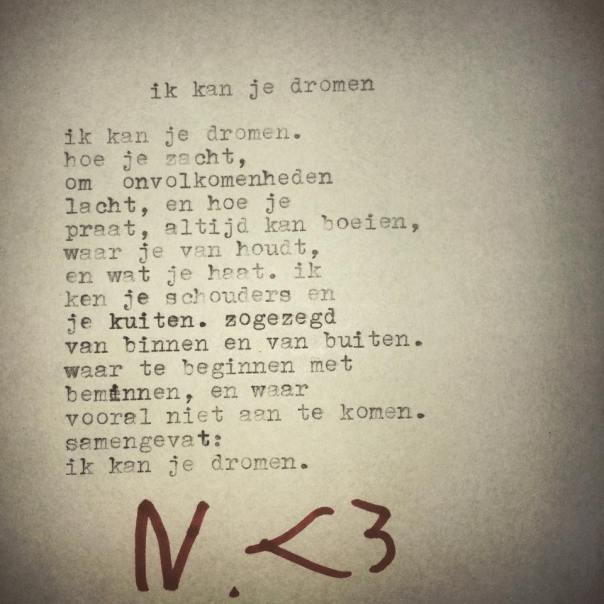 ik kan je dromen
ik kan je dromen.
hoe je zacht,
om onvolkomenheden
lacht, en hoe je
praat, altijd kan boeien,
waar je van houdt,
en wat je haat. ik
ken je schouders en
je kuiten. zogezegd
van binnen en van buiten.
waar te beginnen met
beminnen, en waar
vooral niet aan te komen.
samengevat:
ik kan je dromen.
N. <3